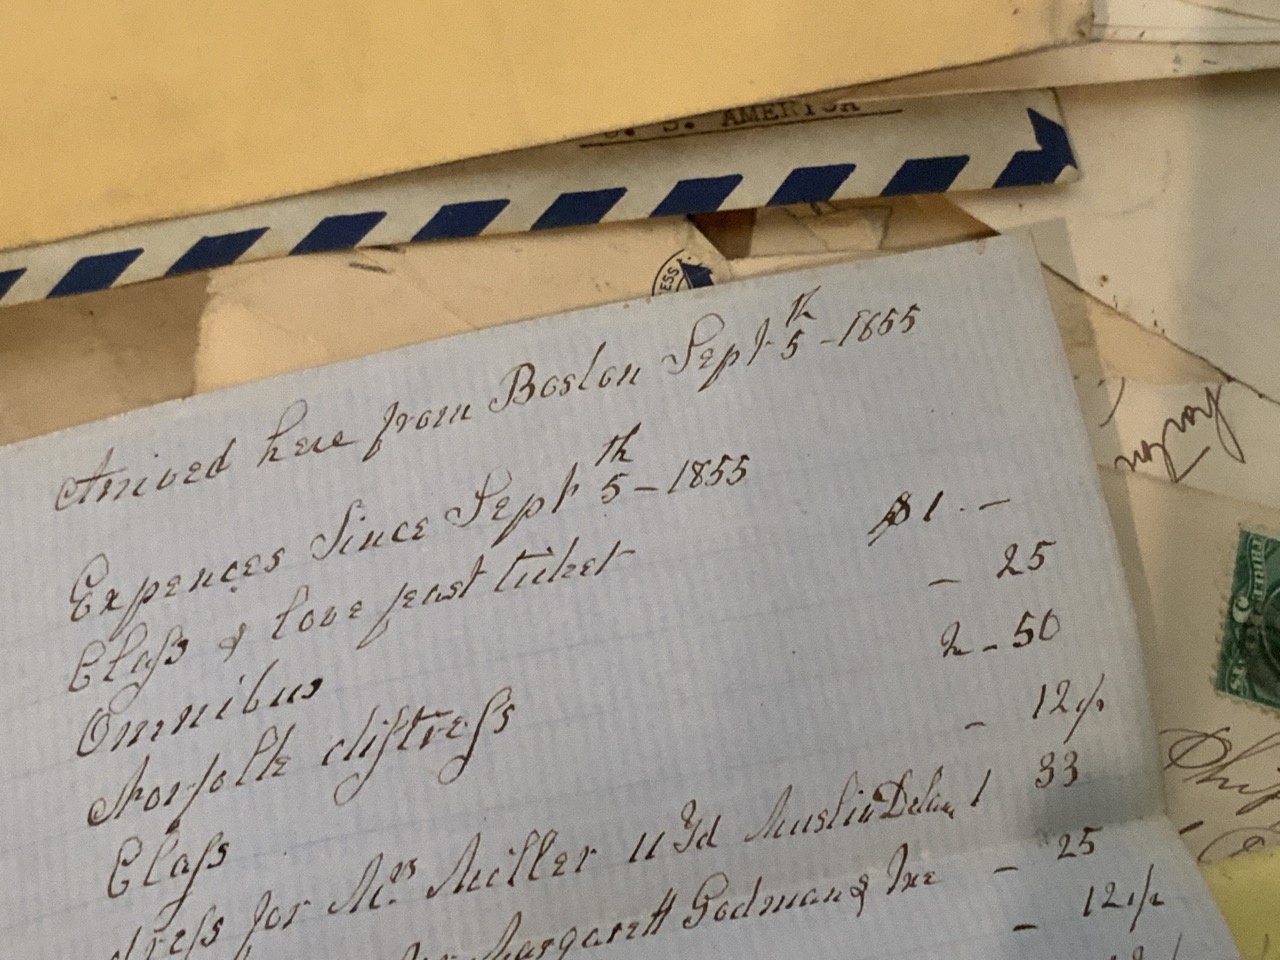 U. S. AMERICA
ESS
Arrived here from Boston Sept 5th - 1855
Expences Since Sept 5th - 1855
Class & love feast ticket $1. -
Omnibus - 25
Norfolk distress 2 - 50
Class - 12 1/2
dress for Mrs. Miller 11 Yd Muslin Delain 1 33
Margarett Godman & Ine - 25
- 12 1/2